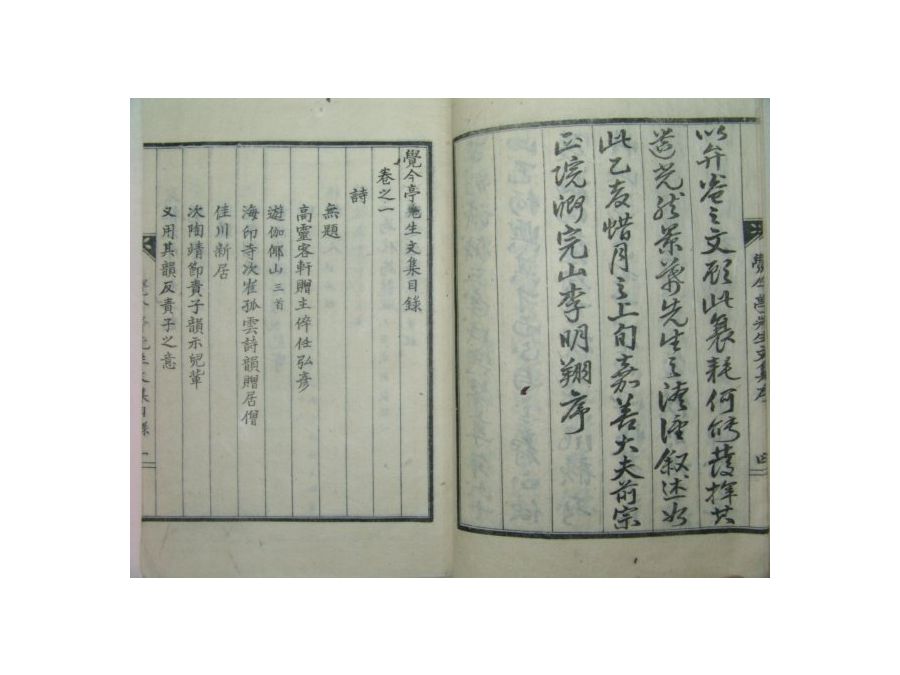 以弁卷之文顧此衰耗何能發揮其
景慕先生之
此乙亥惜月之上旬嘉善大夫前宗
正院卿完山李明翔序
覺今亭先生文集序
四
覺今亭先生文集目錄
卷之一
詩
無題
高靈客軒贈主倅任弘彥
遊伽倻山三首
海印寺次崔孤雲詩韻贈居僧
佳川新居
次陶靖節責子韻示兒輩
又用其韻反責子之意
覺今亭先生文集目錄
一